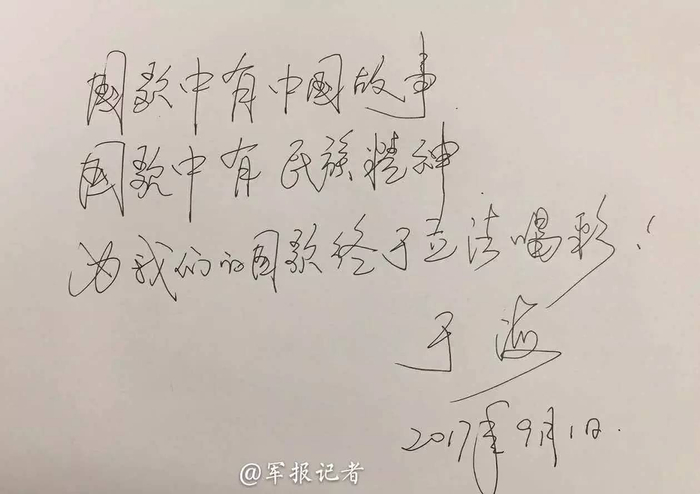 国歌中有中国故事
国歌中有民族精神
为我们的国歌终于立法喝彩！
于海
2017年9月1日.
@军报记者